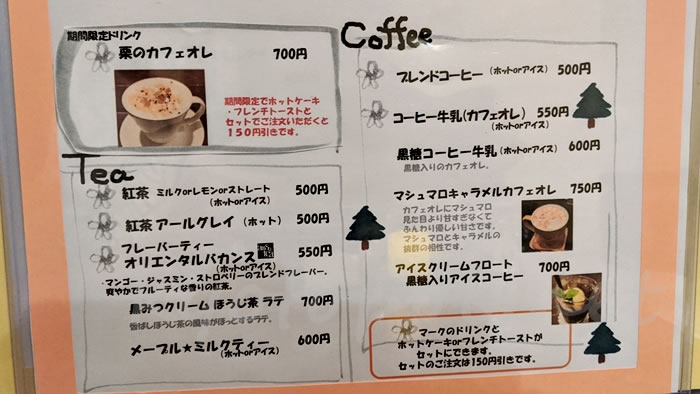 期間限定ドリンク
栗のカフェオレ 700円
期間限定でホットケーキ
・フレンチトーストと
セットでご注文いただくと
150円引きです。
Tea
紅茶 ミルクorレモンorストレート 500円
(ホットorアイス)
紅茶 アールグレイ (ホット) 500円
フレーバーティー
オリエンタルバカンス 550円
(ホットorアイス)
・マンゴー・ジャスミン・ストロベリーのブレンドフレーバー。
爽やかでフルーティな香りの紅茶。
黒みつクリーム ほうじ茶 ラテ 700円
香ばしほうじ茶の風味がほっとするラテ。
メープル★ミルクティー 600円
(ホットorアイス)
Coffee
ブレンドコーヒー (ホットorアイス) 500円
コーヒー牛乳(カフェオレ) 550円
(ホットorアイス)
黒糖コーヒー牛乳 (ホットorアイス) 600円
黒糖入りのカフェオレ。
マシュマロキャラメルカフェオレ 750円
カフェオレにマシュマロ
見た目より甘すぎなくて
ふんわり優しい甘さです。
マシュマロとキャラメルの
抜群の相性です。
アイスクリームフロート 700円
黒糖入りアイスコーヒー
マークのドリンクと
ホットケーキorフレンチトーストが
セットにできます。
セットのご注文は150円引きです。